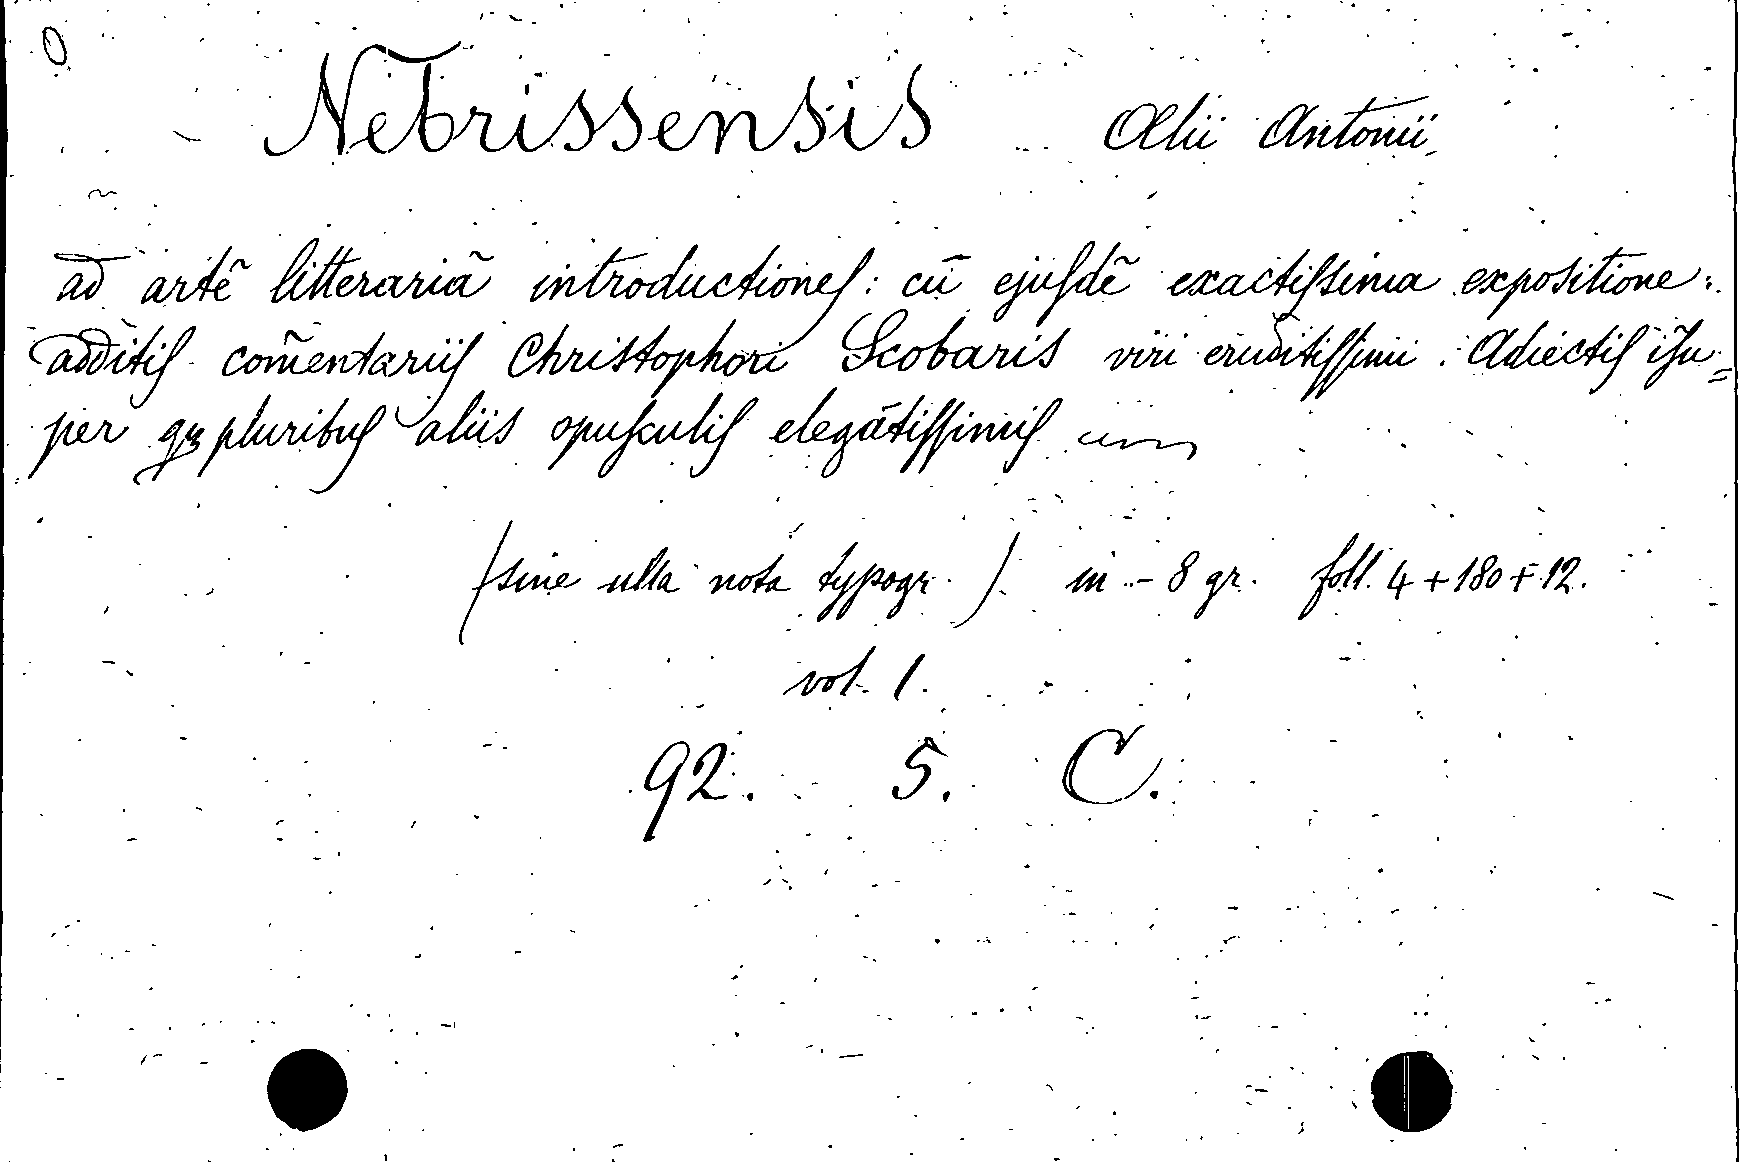 Nebrissensis Ælii Antonii
ad artẽ litterariã introductiones: cũ ejusdẽ exactissima expositione:
additis com̃entariis Christophori Scobaris viri eruditissimi. Adiectis ĩsu=
per pluribus aliis opusculis elegãtissimis
(sine ulla nota typogr.) in-8 gr. foll. 4+180+12.
vol. 1.
92. 5. C.